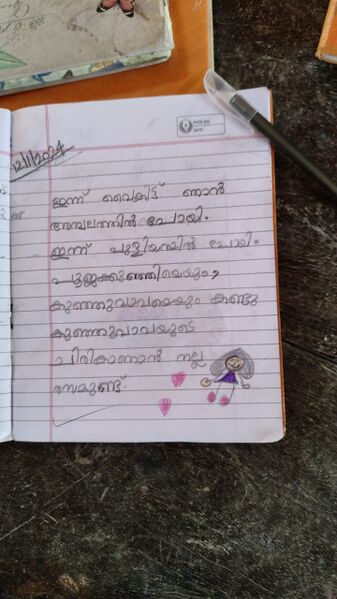 PAGE NO.
DATE
12/11/2024
ഇന്ന് വൈകിട്ട് ഞാൻ
അമ്പലത്തിൽ പോയി.
ഇന്ന് പുളിയനയിൽ പോയി.
പൂജക്കുഞ്ഞിയെയും,
കുഞ്ഞുവാവയെയും കണ്ടു
കുഞ്ഞുവാവയുടെ
ചിരികാണാൻ നല്ല
രസമുണ്ട്